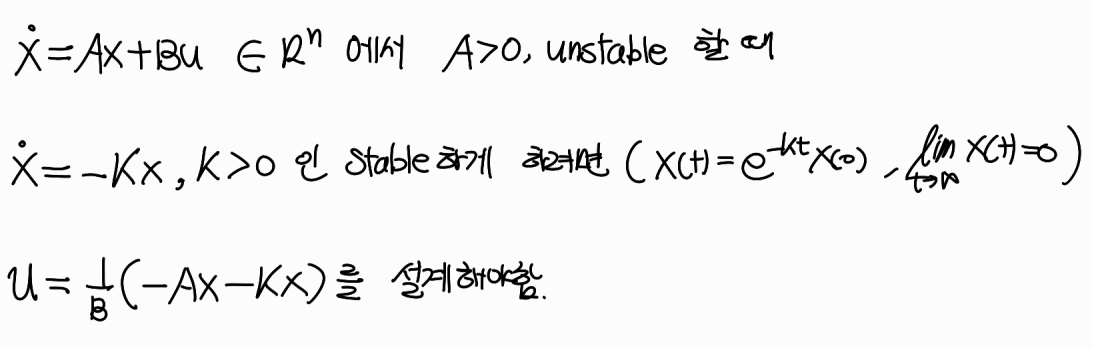 ẋ=Ax+Bu ∈ Rⁿ 에서 A>0, unstable 할 때
ẋ=-Kx, K>0 인 stable하게 하려면 (x(t)=e^{-kt}x(0), lim_{t→∞} x(t)=0)
u=1/B(-Ax-Kx)를 설계해야함.